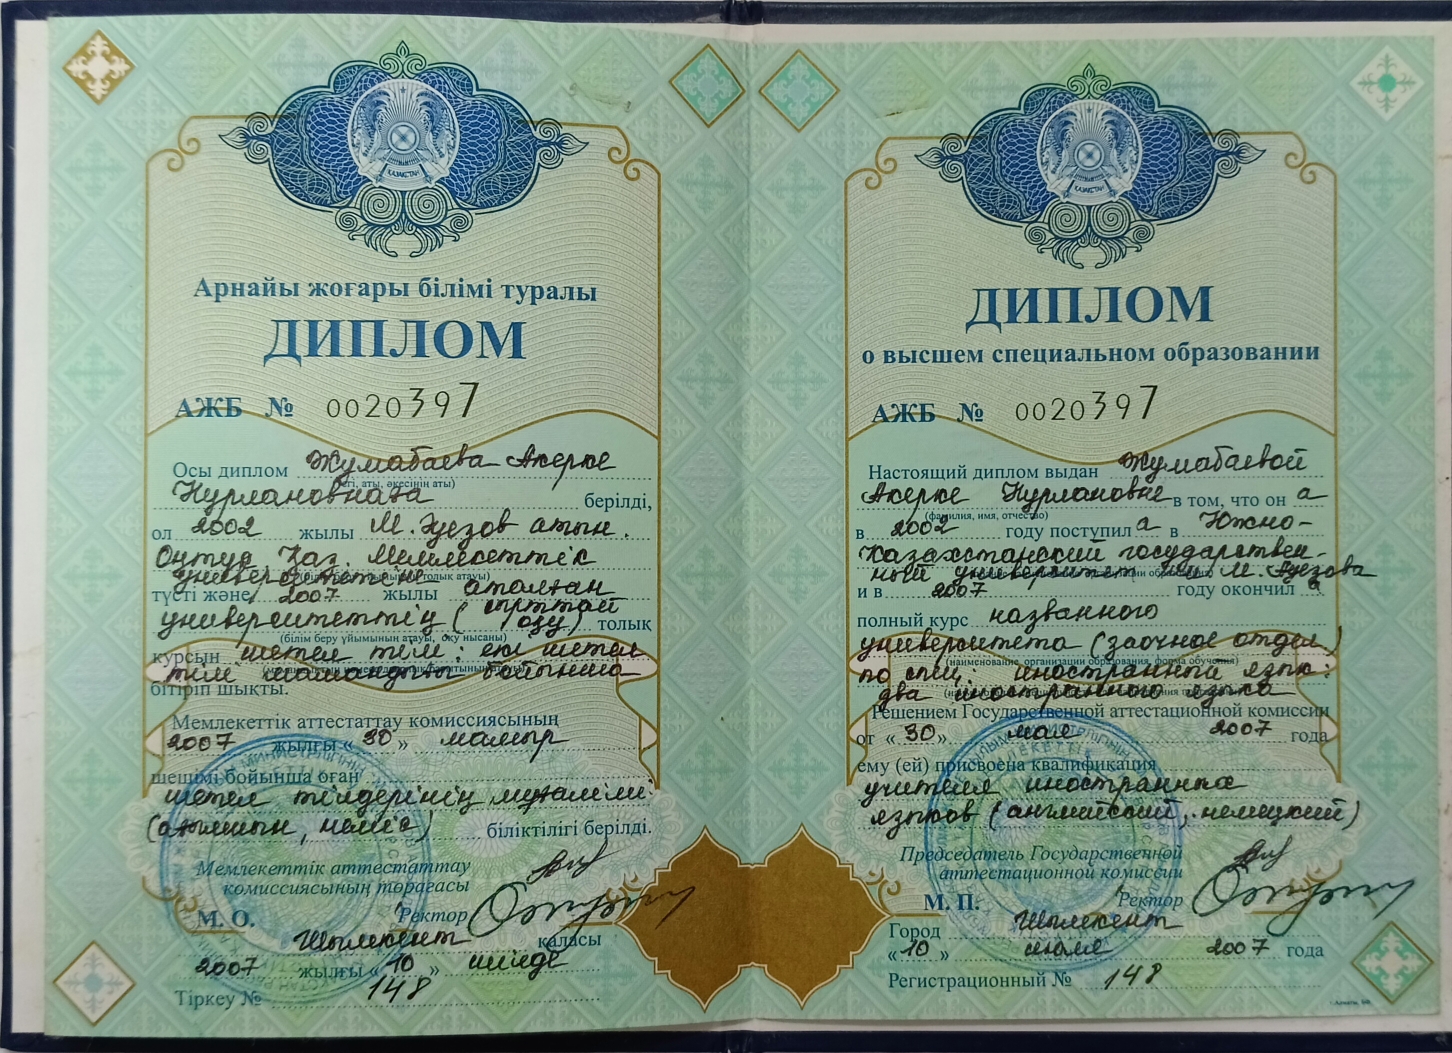 ҚАЗАҚСТАН
Арнайы жоғары білімі туралы
ДИПЛОМ
АЖБ № 0020397
Осы диплом Жумабаева Акерке
(тегі, аты, әкесінің аты)
Нурлановнаға берілді,
ол 2002 жылы М. Әуезов атын.
Оңтүс Қаз. Мемлекеттік
университетіне
түсті және 2007 жылы аталған
университеттің (сырттай оқу) толық
(білім беру ұйымының атауы, оқу нысаны)
курсын шетел тілі: екі шетел
тілі мамандығы бойынша
бітіріп шықты.
Мемлекеттік аттестаттау комиссиясының
2007 жылғы « 30 » мамыр
шешімі бойынша оған
шетел тілдерінің мұғалімі
(ағылшын, неміс) біліктілігі берілді.
Мемлекеттік аттестаттау
комиссиясының төрағасы
М. О. Ректор
Шымкент қаласы
2007 жылғы « 10 » шілде
Тіркеу № 148
ҚАЗАҚСТАН
ДИПЛОМ
о высшем специальном образовании
АЖБ № 0020397
Настоящий диплом выдан Жумабаевой
Акерке Нурлановне в том, что он а
(фамилия, имя, отчество)
в 2002 году поступил а в Южно-
Казахстанский государствен-
ный университет им М. Ауезова
и в 2007 году окончил а
полный курс названного
университета (заочное отдел)
(наименование организации образования, форма обучения)
по спец. иностранный язык:
два иностранного языка
Решением Государственной аттестационной комиссии
от « 30 » мая 2007 года
ему (ей) присвоена квалификация
учителя иностранных
языков (английский, немецкий)
Председатель Государственной
аттестационной комиссии
М. П. Ректор
Город Шымкент
« 10 » июля 2007 года
Регистрационный № 148